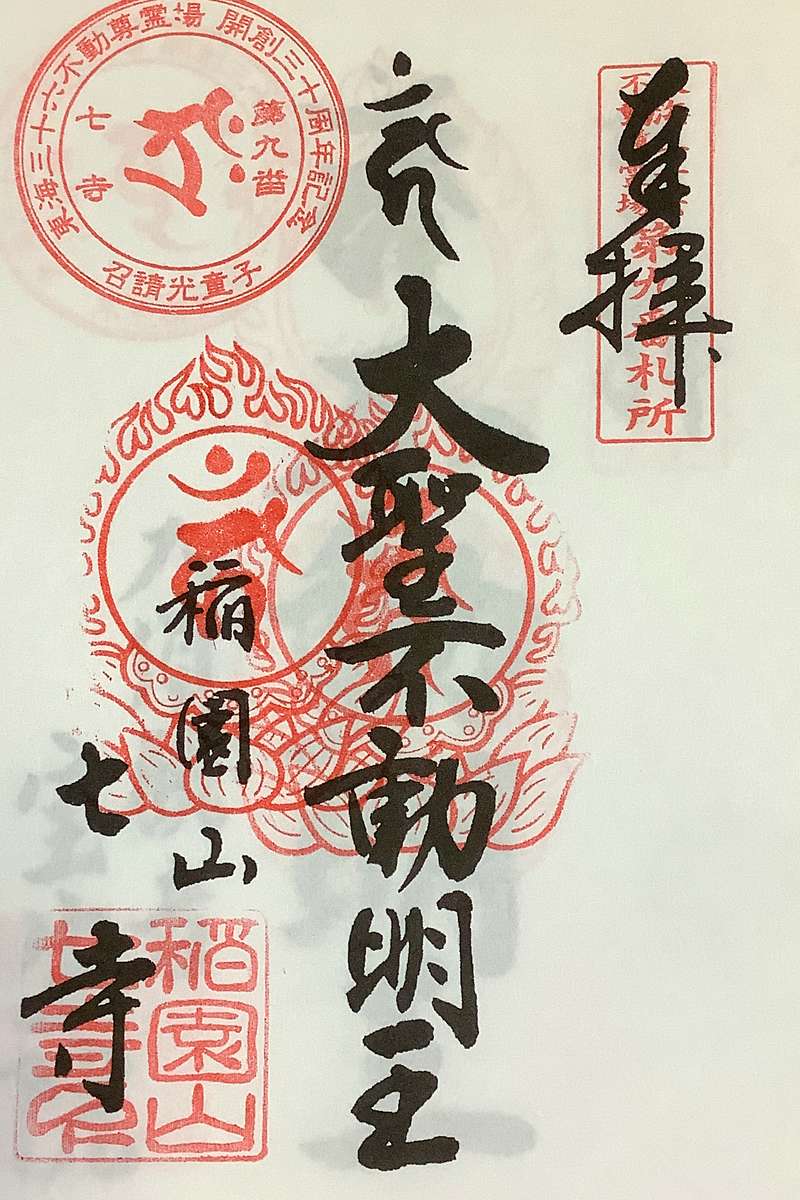 奉拝
不動尊霊場第九番札所
大聖不動明王
稲園山
七寺
東海三十六不動尊霊場 開創三十周年記念
第九番
七寺
召請光童子
稲園山
七寺